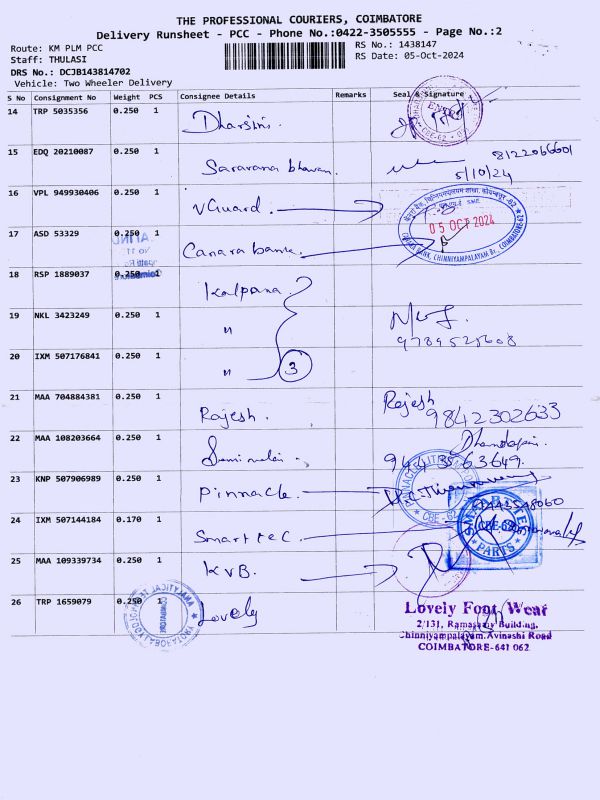 THE PROFESSIONAL COURIERS, COIMBATORE
Delivery Runsheet - PCC - Phone No.:0422-3505555 - Page No.:2
Route: KM PLM PCC
RS No.: 1438147
Staff: THULASI
RS Date: 05-Oct-2024
DRS No.: DCJB143814702
Vehicle: Two Wheeler Delivery
S No Consignment No Weight PCS Consignee Details Remarks Seal & Signature
14 TRP 5035356 0.250 1 Dharshini.
CBE-62
15 EDQ 20210087 0.250 1 Saravana bhavan. 8122066601
5/10/24
16 VPL 949930406 0.250 1 VGuard.
05 OCT 2024
CANARA BANK, CHINNIYAMPALAYAM Br., COIMBATORE-62
17 ASD 53329 0.250 1 Canara bank
18 RSP 1889037 0.250 1 Kalpana
19 NKL 3423249 0.250 1 "
9789525608
20 IXM 507176841 0.250 1 " 3
21 MAA 704884381 0.250 1 Rajesh. Rajesh
9842302633
22 MAA 108203664 0.250 1
94435 63649.
23 KNP 507906989 0.250 1 Pinnacle
CBE-62
24 IXM 507144184 0.170 1 Smart tec.
CBE-62
PARTS
25 MAA 109339734 0.250 1 KVB.
26 TRP 1659079 0.250 1 Lovely
Lovely Foot Wear
2/131, Ramasamy Building,
Chinniyampalayam, Avinashi Road
COIMBATORE-641 062